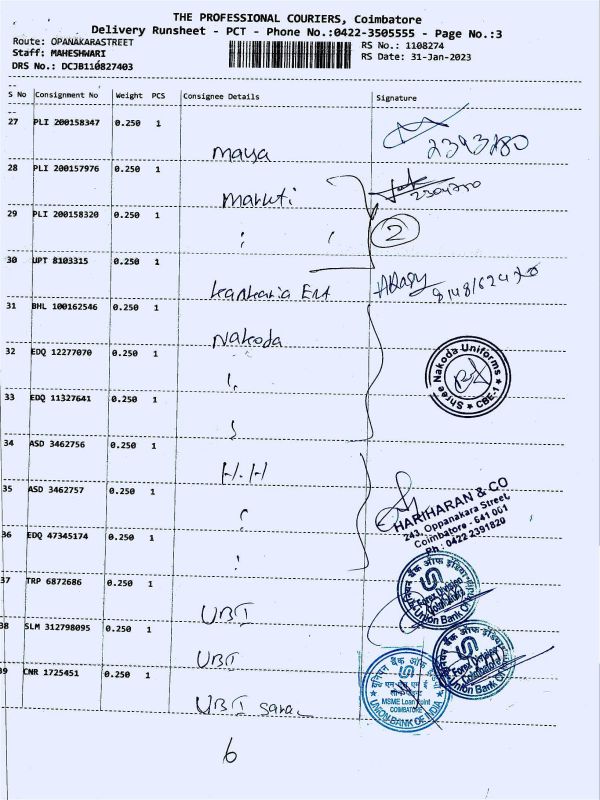 THE PROFESSIONAL COURIERS, Coimbatore
Delivery Runsheet - PCT - Phone No.:0422-3505555 - Page No.:3
Route: OPANAKARASTREET
Staff: MAHESHWARI
DRS No.: DCJB110827403
RS No.: 1108274
RS Date: 31-Jan-2023
S No Consignment No Weight PCS Consignee Details Signature
27 PLI 200158347 0.250 1 Maya
28 PLI 200157976 0.250 1 Maruti
29 PLI 200158320 0.250 1 2
30 UPT 8103315 0.250 1 kankaria Ent
31 BHL 100162546 0.250 1 Nakoda
32 EDQ 12277070 0.250 1
Shree Nakoda Uniforms ★ CBE-1 ★
33 EDQ 11327641 0.250 1
34 ASD 3462756 0.250 1 H.H
35 ASD 3462757 0.250 1
HARIHARAN & CO
243, Oppanakara Street,
Coimbatore - 641 001
Ph : 0422 2391820
36 EDQ 47345174 0.250 1
37 TRP 6872686 0.250 1 UBI
यूनियन बैंक ऑफ इंडिया
Union Bank
38 SLM 312798095 0.250 1 UBI
Union Bank
39 CNR 1725451 0.250 1 UBI
यूनियन बैंक ऑफ
MSME Loan Point
COIMBATORE
UNION BANK OF INDIA
6